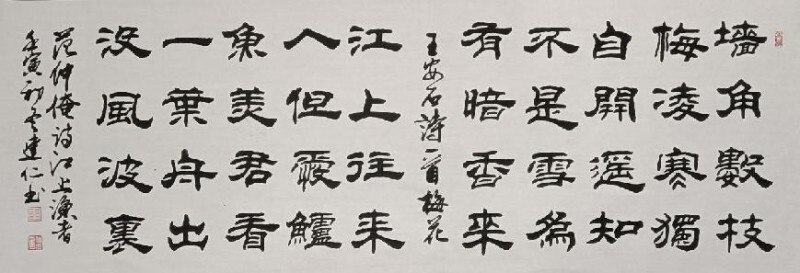 墻角數枝
梅凌寒獨
自開遥知
不是雪為
有暗香來
王安石詩一首梅花
江上往来
人但愛鱸
魚美君看
一葉舟出
没風波裏
范仲淹诗江上漁者
壬寅初仁书